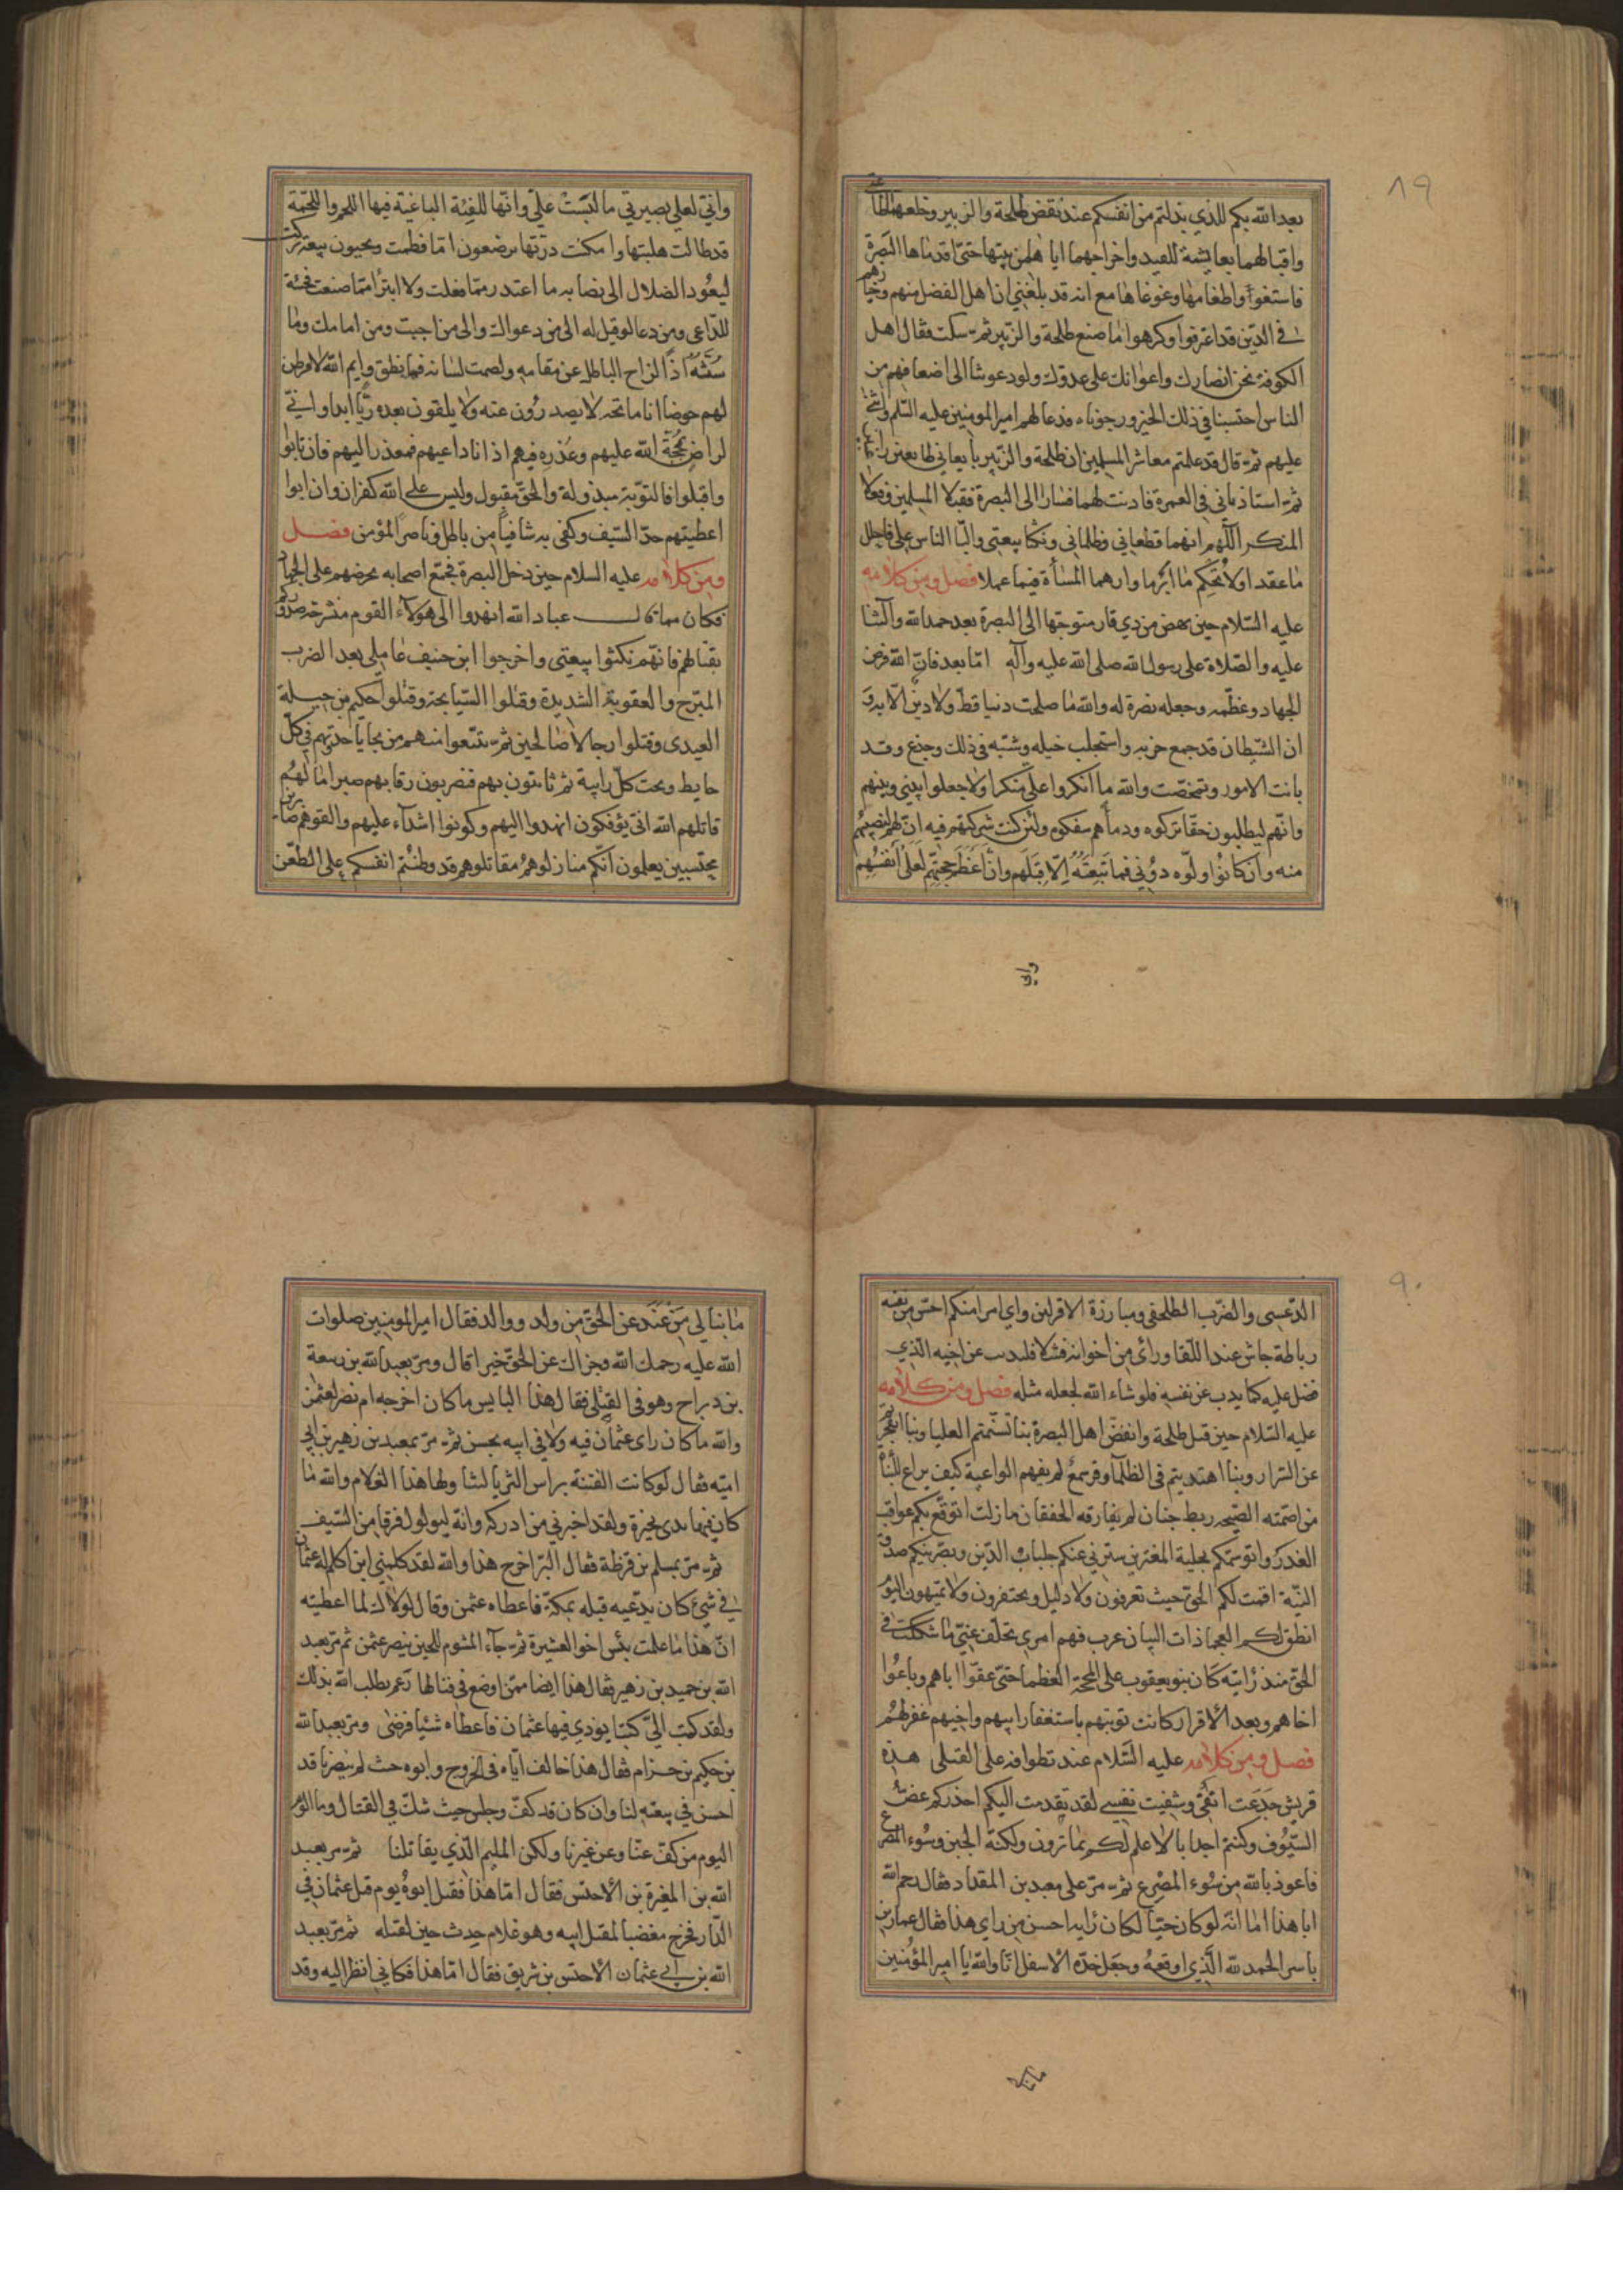 ٨٩
بعد الله بكم للذي بذلتم من انفسكم عند نقض طلحة والزبير وخلعهما طاعتي
واقبالهما بعايشة للعبيد واخراجهما اياها من بيتها حتى اقدماها البصرة
فاستغووا طغامها وغوغاها مع انه قد بلغني ان اهل الفضل منهم وخيارهم
في الدين قد اعتزلوا وكرهوا ما صنع طلحة والزبير ثم سكت فقال اهل
الكوفة نحن انصارك واعوانك على عدوك ولو دعوتنا الى اضعافهم من
الناس احتسبنا في ذلك الخير ورجوناه فدعا لهم امير المومنين عليه السلم واثنى
عليهم ثم قال قد علمتم معاشر المسلمين ان طلحة والزبير بايعاني طايعين راغبين
ثم استاذناني في العمرة فاذنت لهما فسارا الى البصرة فقتلا المسلمين وفعلا
المنكر اللهم انهما قطعاني وظلماني ونكثا بيعتي والبا الناس علي فاحلل
ما عقدا ولا تحكم ما ابرما وارهما المساءة فيما عملا فصل ومن كلامه
عليه السلام حين نهض من ذي قار متوجها الى البصرة بعد حمد الله والثنا
عليه والصلاة على رسول الله صلى الله عليه وآله اما بعد فان الله فرض
الجهاد وعظمه وجعله نصرة له والله ما صلحت دنيا قط ولا دين الا به و
ان الشيطان قد جمع حزبه واستجلب خيله وشبه في ذلك وخدع وقد
بانت الامور وتمحصت والله ما انكروا علي منكرا ولا جعلوا بيني وبينهم
وانهم ليطلبون حقا تركوه ودما هم سفكوه ولئن كنت شركتهم فيه ان لهم لنصيبهم
منه وان كانوا ولوه دوني فما تبعته الا قبلهم وان اعظم حجتهم لعلى انفسهم
واني
واني لعلى بصيرتي ما لبست علي وانها للفئة الباغية فيها اللحم واللحمة
قد طالت هلبتها وامكنت درتها يرضعون اما فطمت ويحيون بيعة تركت
ليعود الضلال الى نصابه ما اعتذر مما فعلت ولا اتبرا مما صنعت فخيبة
للداعي ومن دعا لو قيل له الى من دعواك والى من اجبت ومن امامك وما
سنته اذا لزاح الباطل عن مقامه ولصمت لسانه فما نطق وايم الله لافرطن
لهم حوضا انا ماتحه لا يصدرون عنه ولا يلقون بعده ريا ابدا واني
لراض بحجة الله عليهم وعذره فيهم اذ انا داعيهم فمعذر اليهم فان تابوا
واقبلوا فالتوبة مبذولة والحق مقبول وليس على الله كفران وان ابوا
اعطيتهم حد السيف وكفى به شافيا من باطل وناصرا لمؤمن فصل
ومن كلامه عليه السلام حين دخل البصرة فجمع اصحابه يحرضهم على الجهاد
فكان مما قال عباد الله انهدوا الى هؤلاء القوم منشرحة صدوركم
بقتالهم فانهم نكثوا بيعتي واخرجوا ابن حنيف عاملي بعد الضرب
المبرح والعقوبة الشديدة وقتلوا السيابحة وقتلوا حكيم بن جبلة
العبدي وقتلوا رجالا صالحين ثم تتبعوا منهم من نجا ياخذونهم في كل
حايط وتحت كل رابية ثم ياتون بهم فيضربون رقابهم صبرا ما لهم
قاتلهم الله انى يؤفكون انهدوا اليهم وكونوا اشدآء عليهم والقوهم صابرين
محتسبين يعلمون انكم منازلوهم مقاتلوهم قد وطنتم انفسكم على الطعن
٩٠
الدعسي والضرب الطلحفي ومبارزة الاقران واي امرا منكم احس من نفسه
رباطة جاش عند اللقا ورأى من اخوانه فشلا فليذب عن اخيه الذي
فضل عليه كما يذب عن نفسه فلو شاء الله لجعله مثله فصل ومن كلامه
عليه السلام حين قتل طلحة وانفض اهل البصرة بنا تسنمتم العليا وبنا انفجرتم
عن السرار وبنا اهتديتم في الظلما وقر سمع لم يفهم الواعية كيف يراع للنبأة
من اصمته الصيحة ربط جنان لم يفارقه الخفقان ما زلت اتوقع بكم عواقب
الغدر واتوسمكم بحلية المغترين سترني عنكم جلباب الدين وبصرنيكم صدق
النية اقمت لكم الحق حيث تعرفون ولا دليل وتحتفرون ولا تميهون اليوم
انطق لكم العجما ذات البيان عرب فهم امري تخلف عني ما شككت في
الحق منذ رايته كان بنو يعقوب على المحجة العظما حتى عقوا اباهم وباعوا
اخاهم وبعد الاقرار كانت توبتهم باستغفار ابيهم واخيهم غفر لهم
فصل ومن كلامه عليه السلام عند تطوافه على القتلى هذه
قريش جدعت انفي وشفيت نفسي لقد تقدمت اليكم احذركم عض
السيوف وكنتم احداثا لا علم لكم بما ترون ولكنه الحين وسوء المصرع
فاعوذ بالله من سوء المصرع ثم مر على معبد بن المقداد فقال رحم الله
ابا هذا اما انه لو كان حيا لكان رايه احسن من راي هذا فقال عمار بن
ياسر الحمد لله الذي اوقعه وجعل خده الاسفل انا والله يا امير المؤمنين
مانبالي
ما نبالي من عند عن الحق من ولد ووالد فقال امير المومنين صلوات
الله عليه رحمك الله وجزاك عن الحق خيرا قال ومر بعبد الله بن ربيعة
بن دراج وهو في القتلى فقال هذا البايس ما كان اخرجه ام نصر لعثمن
والله ما كان راى عثمان فيه ولا في ابيه بحسن ثم مر بمعبد بن زهير بن ابي
اميه فقال لو كانت الفتنة براس الثريا لتناولها هذا الغلام والله ما
كان فيها بذي نحيزة ولقد اخبرني من ادركه وانه ليولول فرقا من السيف
ثم مر بمسلم بن قرظة فقال البر اخرج هذا والله لقد كلمني ان اكلم له عثمان
في شئ كان يدعيه قبله بمكة فاعطاه عثمن وقال لولا انت لما اعطيته
ان هذا ما علمت بئس اخو العشيرة ثم جاء المشوم للحين ينصر عثمن ثم مر بعبد
الله بن حميد بن زهير فقال هذا ايضا ممن اوضع في قتالنا زعم يطلب الله بذلك
ولقد كتب الي كتبا يوذي فيها عثمان فاعطاه شئيا فرضى ومر بعبد الله
بن حكيم بن حزام فقال هذا خالف اباه في الخروج وابوه حيث لم ينصرنا قد
احسن في بيعته لنا وان كان قد كف وجلس حيث شك في القتال وما الوم
اليوم من كف عنا وعن غيرنا ولكن المليم الذي يقاتلنا ثم مر بعبد
الله بن المغيرة بن الاخنس فقال اما هذا فقتل ابوه يوم قتل عثمان في
الدار فخرج مغضبا لمقتل ابيه وهو غلام حدث حين لقتله ثم مر بعبد
الله بن ابي عثمان الاخنس بن شريق فقال اما هذا فكاني انظر اليه وقد